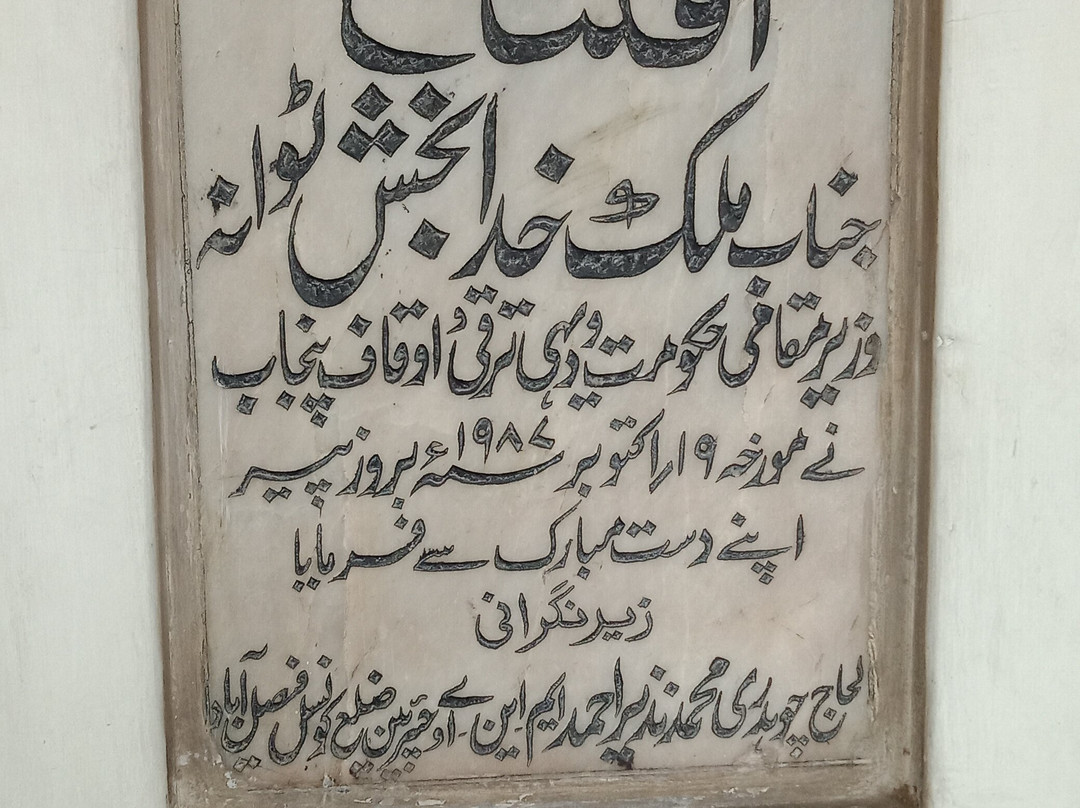 افتتاح
جناب ملک خدا بخش ٹوانہ
وزیر مقامی حکومت و دیہی ترقی و اوقاف پنجاب
نے مورخہ ۱۹ اکتوبر ۱۹۸۷ء بروز پیر
اپنے دست مبارک سے فرمایا
زیر نگرانی
الحاج چوہدری محمد نذیر احمد ایم این اے و چیئرمین ضلع کونسل فیصل آباد